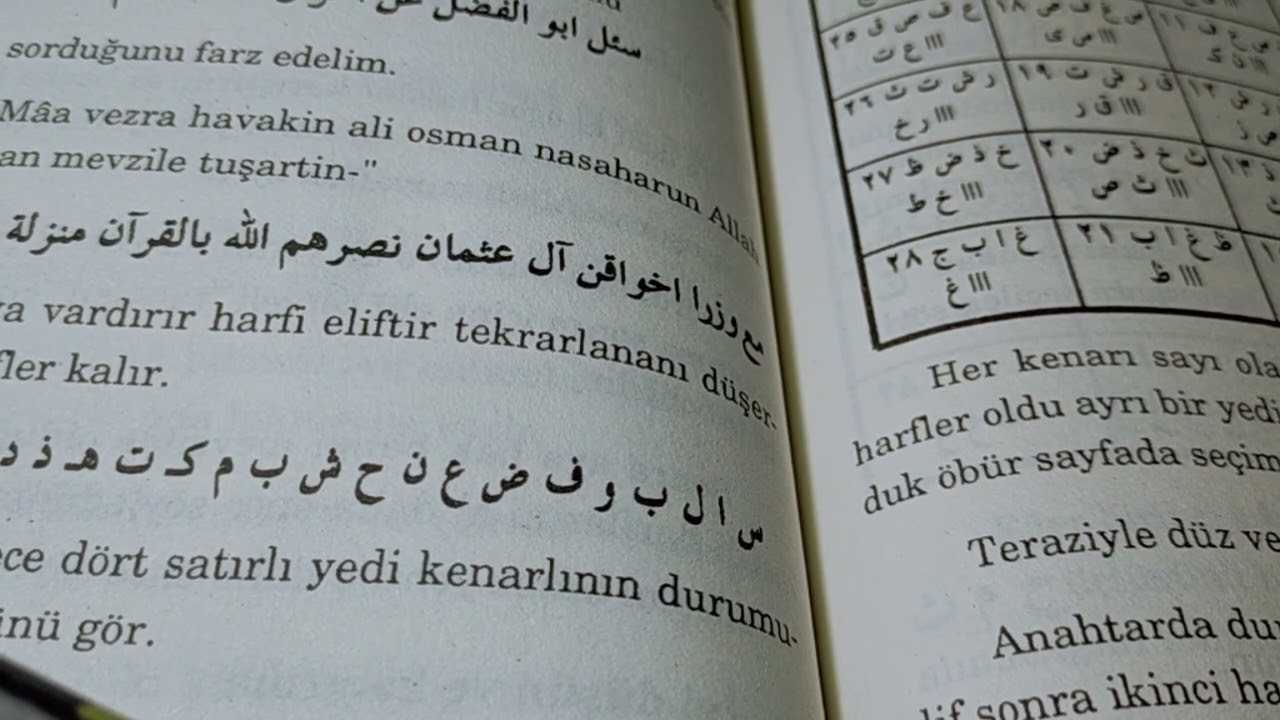 سئل ابو الفضل عن
sorduğunu farz edelim.
Mâa vezra havakin ali osman nasaharun Allah
an mevzile tuşartin-"
مع وزرا اخواقن آل عثمان نصرهم الله بالقرآن منزلة
ya vardırır harfi eliftir tekrarlananı düşer-
fler kalır.
س ا ل ب و ف ض ع ن ح ش ب م كـ ت هـ ذ د
ece dört satırlı yedi kenarlının durumu-
ünü gör.
ع ف ص ق ٢٥
ااا ع ت
ص ع ف ض ١٨
ااا ص ى
ر ش ت ث ٢٦
ااا ر خ
ق ر ش ت ١٩
ااا ق ر
خ ذ ض ظ ٢٧
ااا خ ط
ث خ ذ ض ٢٠
ااا ث ص
غ ا ب ج ٢٨
ااا غ
ظ غ ا ب ٢١
ااا ظ
Her kenarı sayı ola
harfler oldu ayrı bir yedi
duk öbür sayfada seçim
Teraziyle düz ve
Anahtarda du
lif sonra ikinci ha